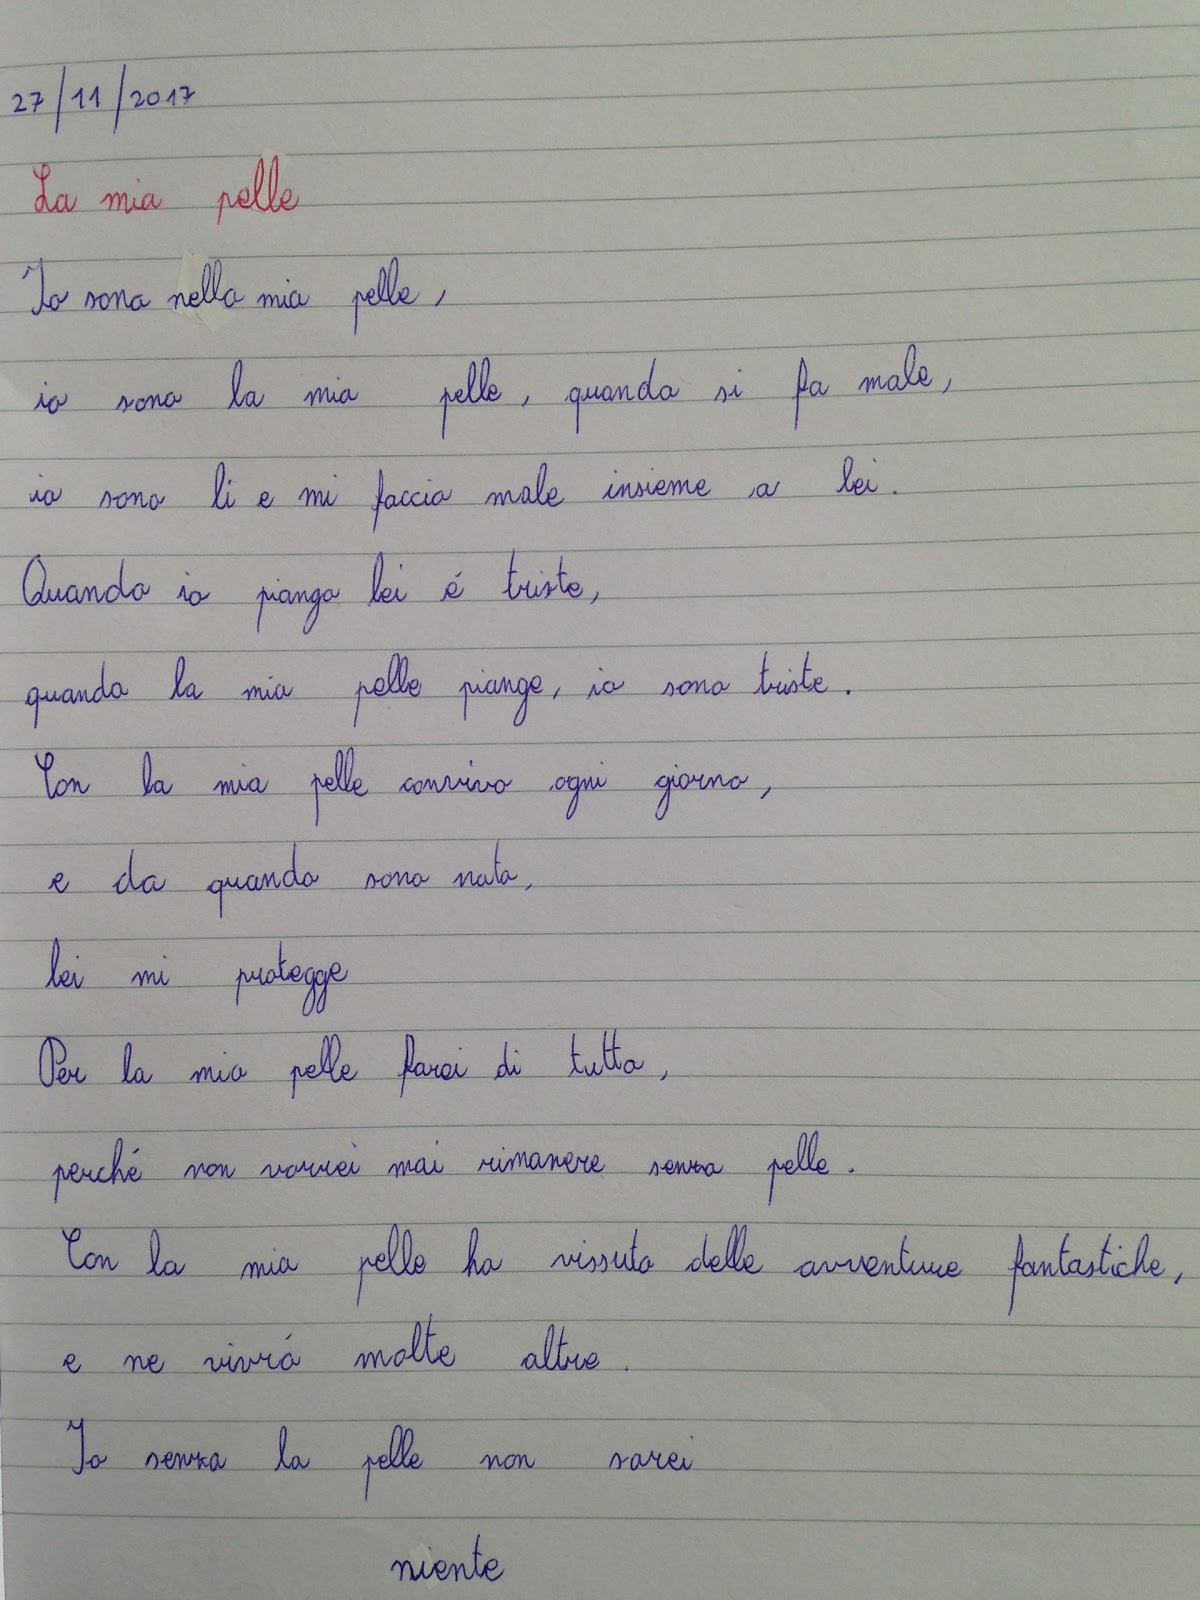 27/11/2017
La mia pelle
Io sono nella mia pelle,
io sono la mia pelle, quando si fa male,
io sono li e mi faccio male insieme a lei.
Quando io piango lei é triste,
quando la mia pelle piange, io sono triste.
Con la mia pelle convivo ogni giorno,
e da quando sono nata,
lei mi protegge
Per la mia pelle farei di tutto,
perché non vorrei mai rimanere senza pelle.
Con la mia pelle ho vissuto delle avventure fantastiche,
e ne vivró molte altre.
Io senza la pelle non sarei
niente